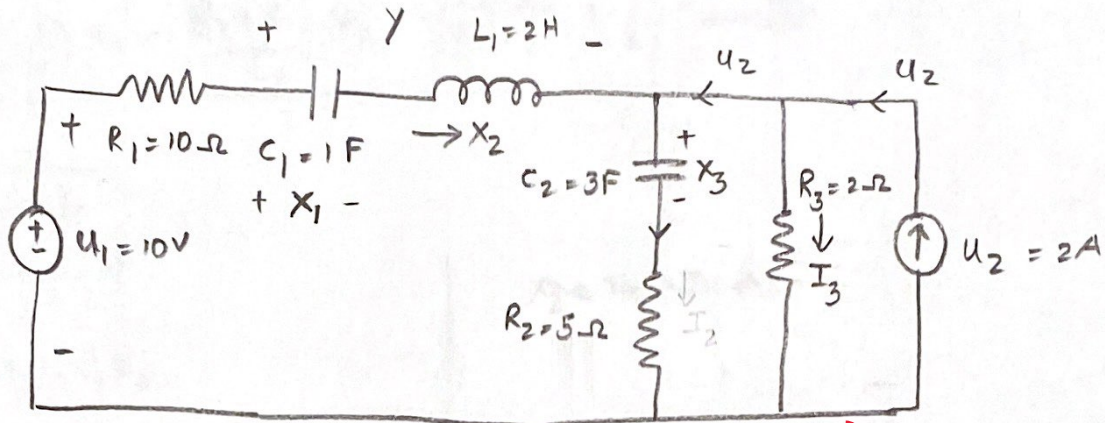 + Y L₁=2H -
u₂ u₂
+ R₁=10Ω C₁=1F → X₂
+ X₁ -
C₂=3F + X₃ -
R₃=2Ω ↓ I₃
+ - u₁=10V
u₂ = 2A
R₂=5Ω ↓ I₂
-